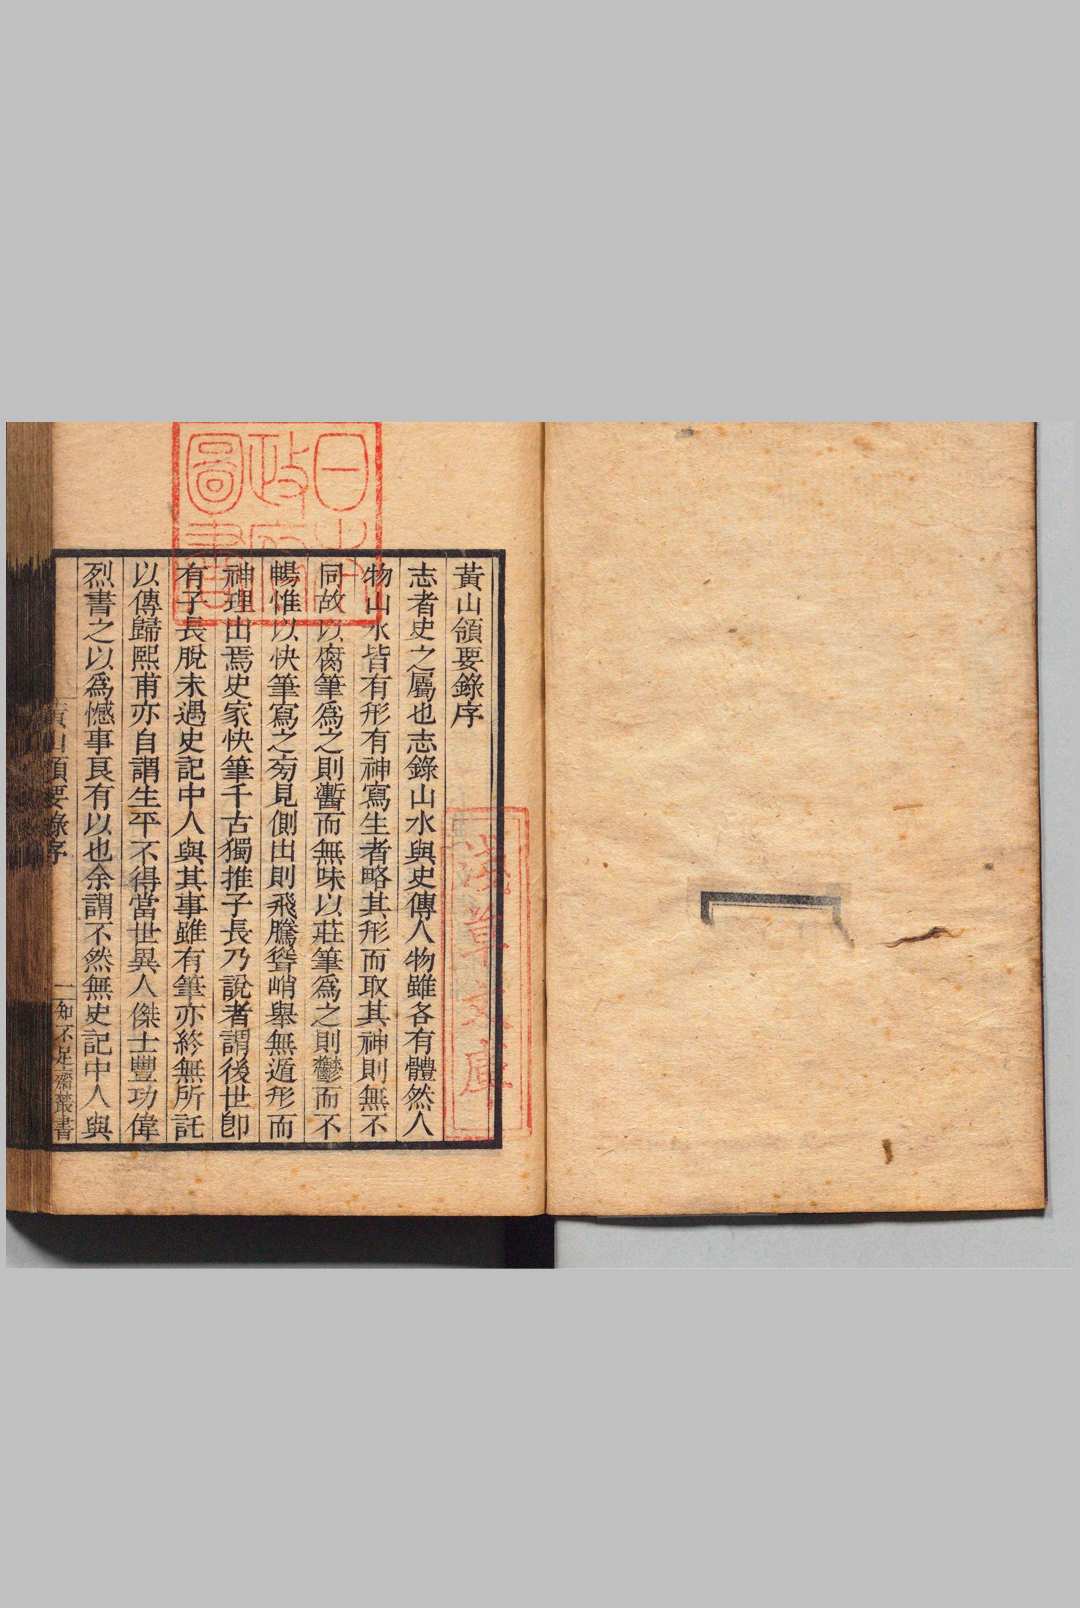 黃山領要錄序
志者史之屬也志錄山水與史傳人物雖各有體然人
物山水皆有形有神寫生者略其形而取其神則無不
同故以腐筆爲之則
而無味以莊筆爲之則鬱而不
暢惟以快筆寫之旁見側出則飛騰聳峭舉無遁形而
神理出焉史家快筆千古獨推子長乃說者謂後世卽
有子長脫未遇史記中人與其事雖有筆亦終無所託
以傳歸熙甫亦自謂生平不得當世異人傑士豐功偉
烈書之以爲憾事良有以也余謂不然無史記中人與
黃山領要錄序
一
知不足齋叢書
日本
政府
圖書
淺草文庫